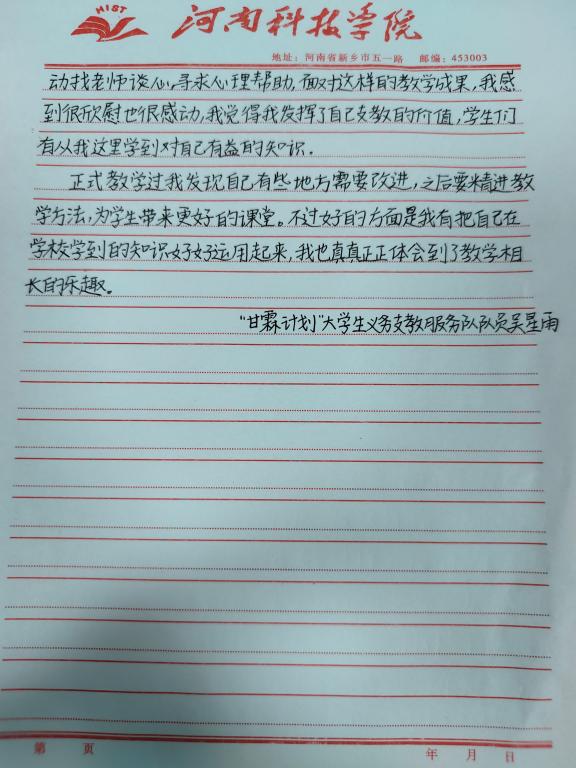 HIST
河南科技学院
地址：河南省新乡市五一路 邮编：453003
动找老师谈心，寻求心理帮助，面对这样的教学成果，我感
到很欣慰也很感动，我觉得我发挥了自己支教的价值，学生们
有从我这里学到对自己有益的知识。
正式教学过我发现自己有些地方需要改进，之后要精进教
学方法，为学生带来更好的课堂。不过好的方面是我有把自己在
学校学到的知识好好运用起来，我也真真正正体会到了教学相
长的乐趣。
“甘霖计划”大学生义务支教服务队队员吴星雨
第 页 年 月 日